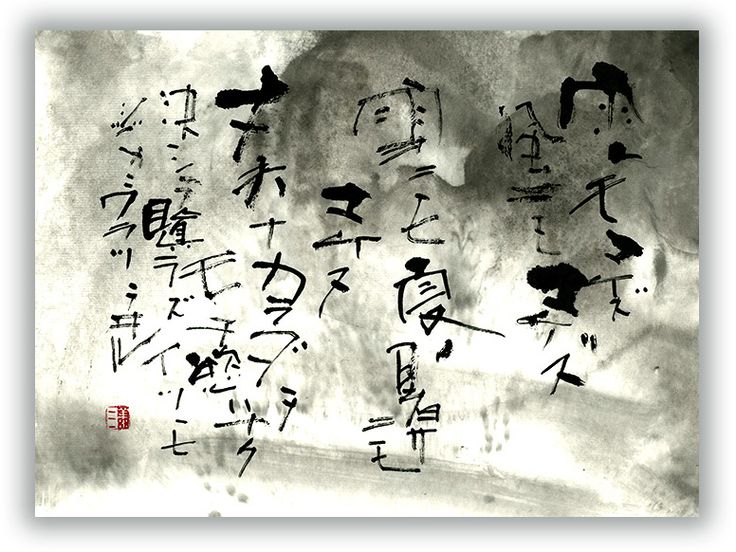 雨ニモマケズ
風ニモマケズ
雪ニモ夏ノ暑サニモ
マケヌ
丈夫ナカラダヲ
モチ慾ハナク
決シテ瞋ラズイツモ
シヅカニワラッテヰル